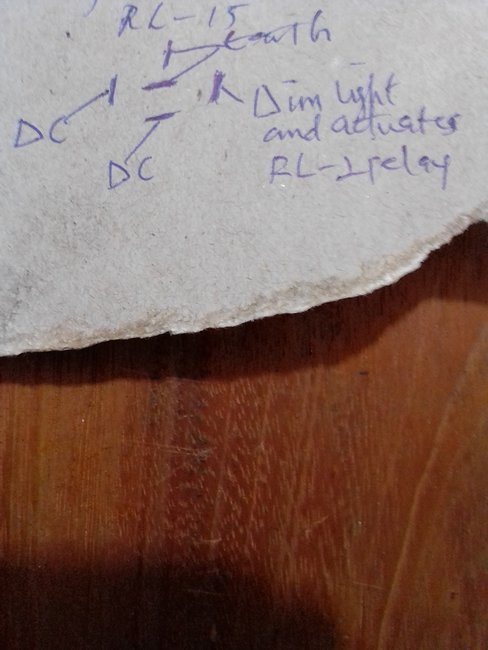 RL-15
Earth
DC
Dim light
and actuates
RL-2 relay
DC